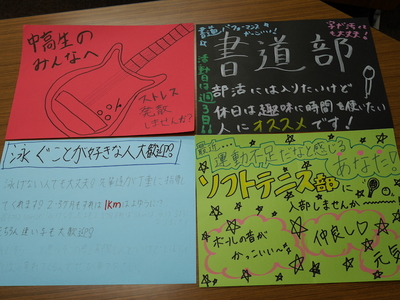 中高生の
みんなへ
ストレス
発散
しませんか?
書道パフォーマンスが
かっこいい!
字が汚くても
大丈夫!
書道部
活動日は週3日!!
部活には入りたいけど
休日は趣味に時間を使いたい
人にオススメです!
泳ぐことが好きな人大歓迎!!
泳げない人でも大丈夫!!
1km
も大歓迎!!
最近...
運動不足だなと感じる
あなた!
ソフトテニス部に
入部しませんか
ボールの音が
かっこいい
仲良し♡
元気